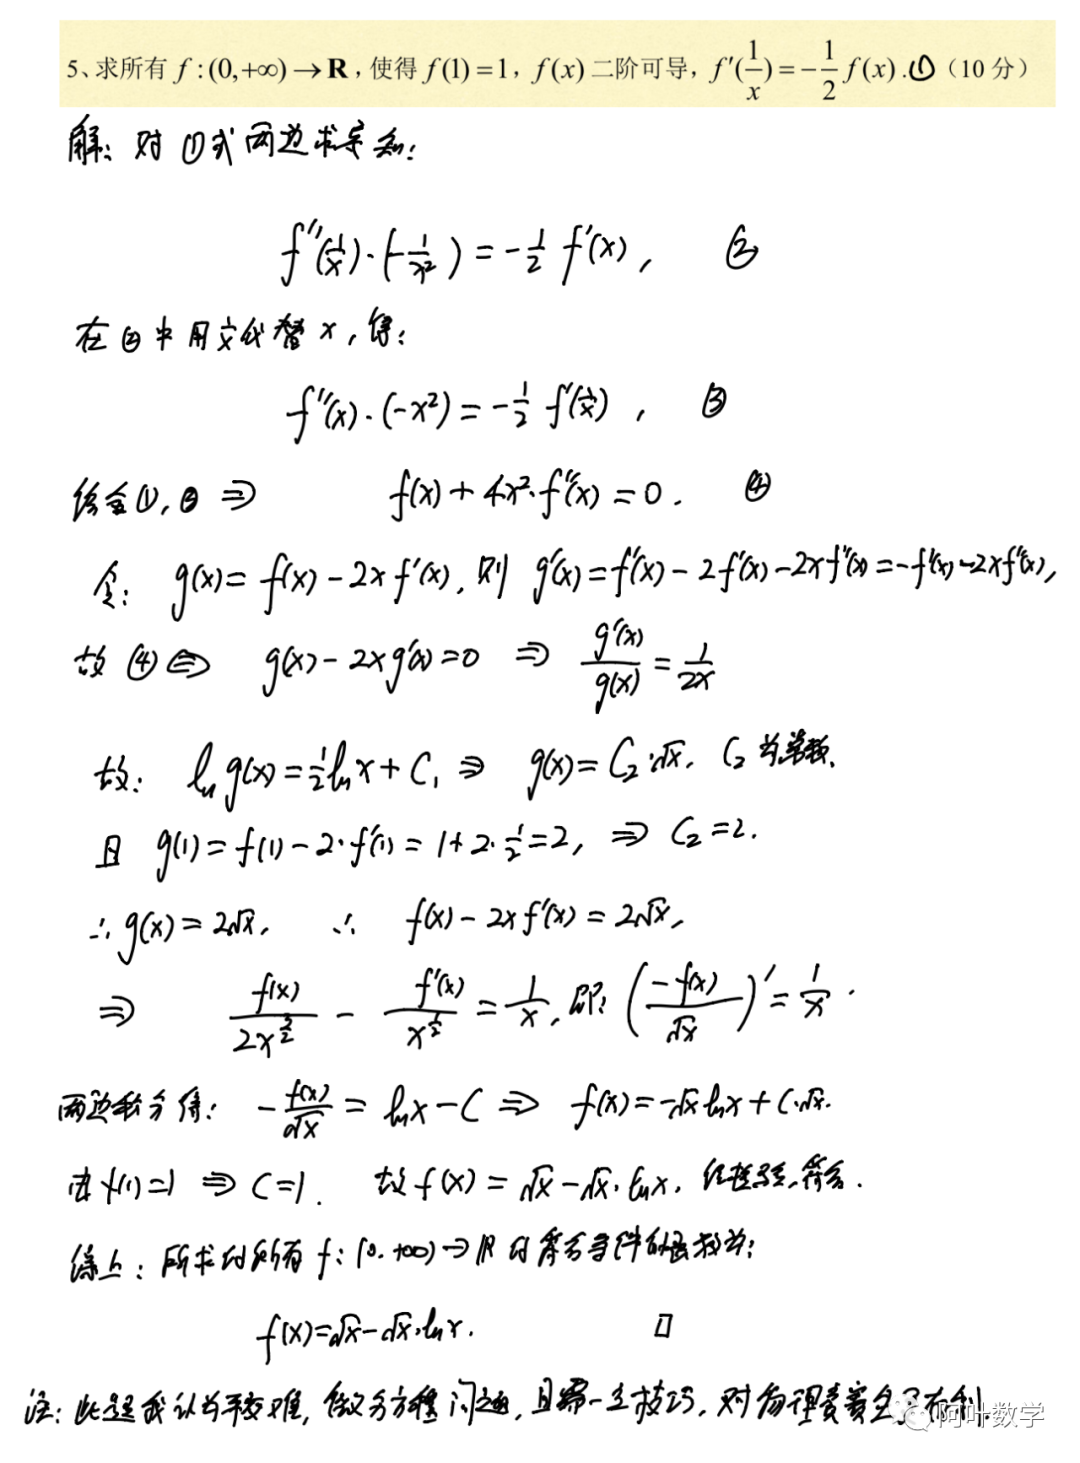 5、求所有 f:(0,+∞)→R,使得 f(1)=1,f(x) 二阶可导,f′(1/x)=-1/2 f(x).①(10 分)
解:对①式两边求导知:
f″(1/x)·(-1/x²)=-1/2 f′(x), ②
在②中用1/x代替x,得:
f″(x)·(-x²)=-1/2 f′(1/x), ③
综合①,③ ⇒ f(x)+4x²·f″(x)=0. ④
令:g(x)=f(x)-2xf′(x),则 g′(x)=f′(x)-2f′(x)-2xf″(x)=-f′(x)-2xf″(x),
故④⇔ g(x)-2xg′(x)=0 ⇒ g′(x)/g(x)=1/2x
故:ln g(x)=1/2 ln x+C₁ ⇒ g(x)=C₂·√x, C₂为常数.
且 g(1)=f(1)-2·f′(1)=1+2·1/2=2, ⇒ C₂=2.
∴g(x)=2√x, ∴ f(x)-2xf′(x)=2√x,
⇒ f(x)/2x^(3/2) - f′(x)/x^(1/2) = 1/x,即:(-f(x)/√x)′=1/x.
两边积分得:-f(x)/√x=ln x-C ⇒ f(x)=-√x ln x+C·√x.
由f(1)=1 ⇒ C=1. 故f(x)=√x-√x·ln x, 经检验,符合.
综上:所求的所有 f:(0,+∞)→R 的符合条件的函数为:
f(x)=√x-√x·ln x. □
注:此题我认为较难,微分方程问题,且需一定技巧,对物理竞赛生有利.
阿叶数学